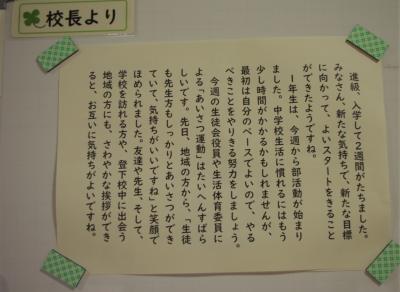 校長より
進級、入学して2週間がたちました。
みなさん、新たな気持ちで、新たな目標
に向かって、よいスタートをきること
ができたようですね。
1年生は、今週から部活動が始まり
ました。中学校生活に慣れるにはもう
少し時間がかかるかもしれませんが、
最初は自分のペースでよいので、やる
べきことをやりきる努力をしましょう。
今週の生徒会役員や生活体育委員に
よる「あいさつ運動」はたいへんすばら
しいです。先日、地域の方から、「生徒
も先生方もしっかりとあいさつができ
ていて、気持ちがいいですね」と笑顔で
ほめられました。友達や先生、そして、
学校を訪れる方や、登下校中に出会う
地域の方にも、さわやかな挨拶ができ
ると、お互いに気持ちがよいですね。